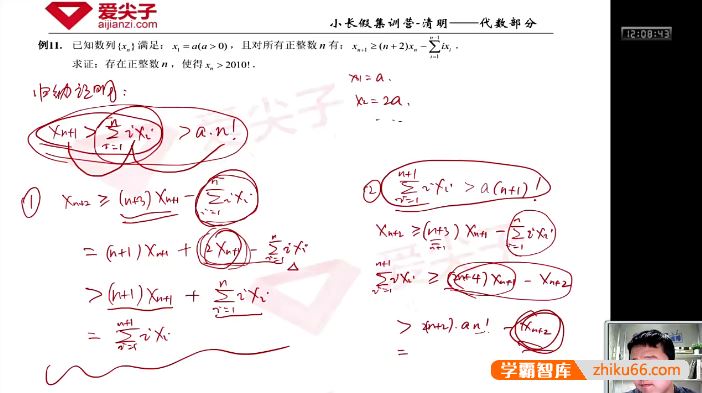 爱尖子
aijianzi.com
小长假集训营-清明——代数部分
12:08:43
例11. 已知数列{xₙ}满足：x₁ = a(a > 0)，且对所有正整数 n 有：xₙ₊₁ ≥ (n+2)xₙ − ∑ᵢ₌₁ⁿ⁻¹ ixᵢ .
求证：存在正整数 n，使得 xₙ > 2010! .
x₁ = a.
x₂ = 2a.
归纳证明:
xₙ₊₁ > ∑ᵢ₌₁ⁿ ixᵢ > a·n!
① xₙ₊₂ ≥ (n+3)xₙ₊₁ − ∑ᵢ₌₁ⁿ ixᵢ
= (n+1)xₙ₊₁ + 2xₙ₊₁ − ∑ᵢ₌₁ⁿ ixᵢ
> (n+1)xₙ₊₁ + ∑ᵢ₌₁ⁿ ixᵢ
= ∑ᵢ₌₁ⁿ⁺¹ ixᵢ
② ∑ᵢ₌₁ⁿ⁺¹ ixᵢ > a(n+1)!
xₙ₊₂ ≥ (n+3)xₙ₊₁ − ∑ᵢ₌₁ⁿ ixᵢ
n+1
∑ᵢ₌₁ⁿ⁺¹ ixᵢ ≥ (2n+4)xₙ₊₁ − xₙ₊₂
> 2(n+2)·an! − xₙ₊₂
=
爱尖子
学霸智库
zhiku66.com